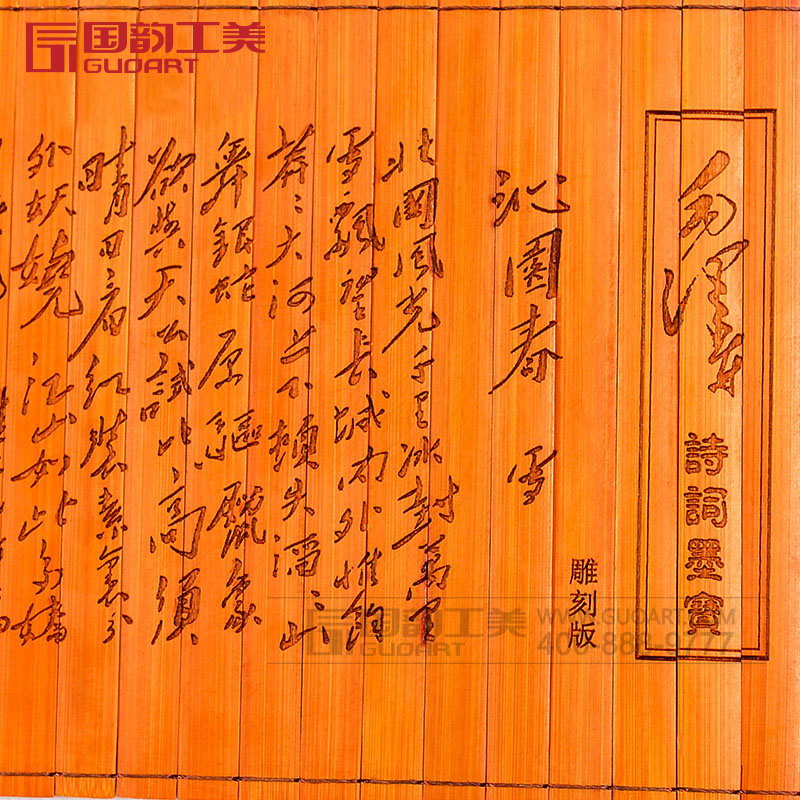 国韵工美
GUOART
毛澤东
詩詞墨寶
雕刻版
沁園春 雪
北國風光千里冰封萬里
雪飄望長城内外惟餘
莽〻大河上下頓失滔〻山
舞銀蛇原驅臘象
欲與天公試比高須
晴日看红裝素裹分
外妖嬈 江山如此多嬌
国韵工美
GUOART
WWW.GUOART.COM
400-888-9777